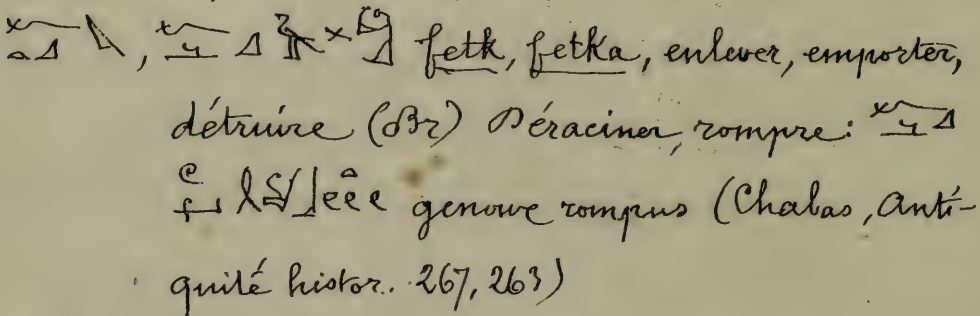 , fetk, fetka, enlever, emporter,
détruire (Br) Déraciner, rompre:
genoux rompus (Chabas, Anti-
quité histor. 267, 263)